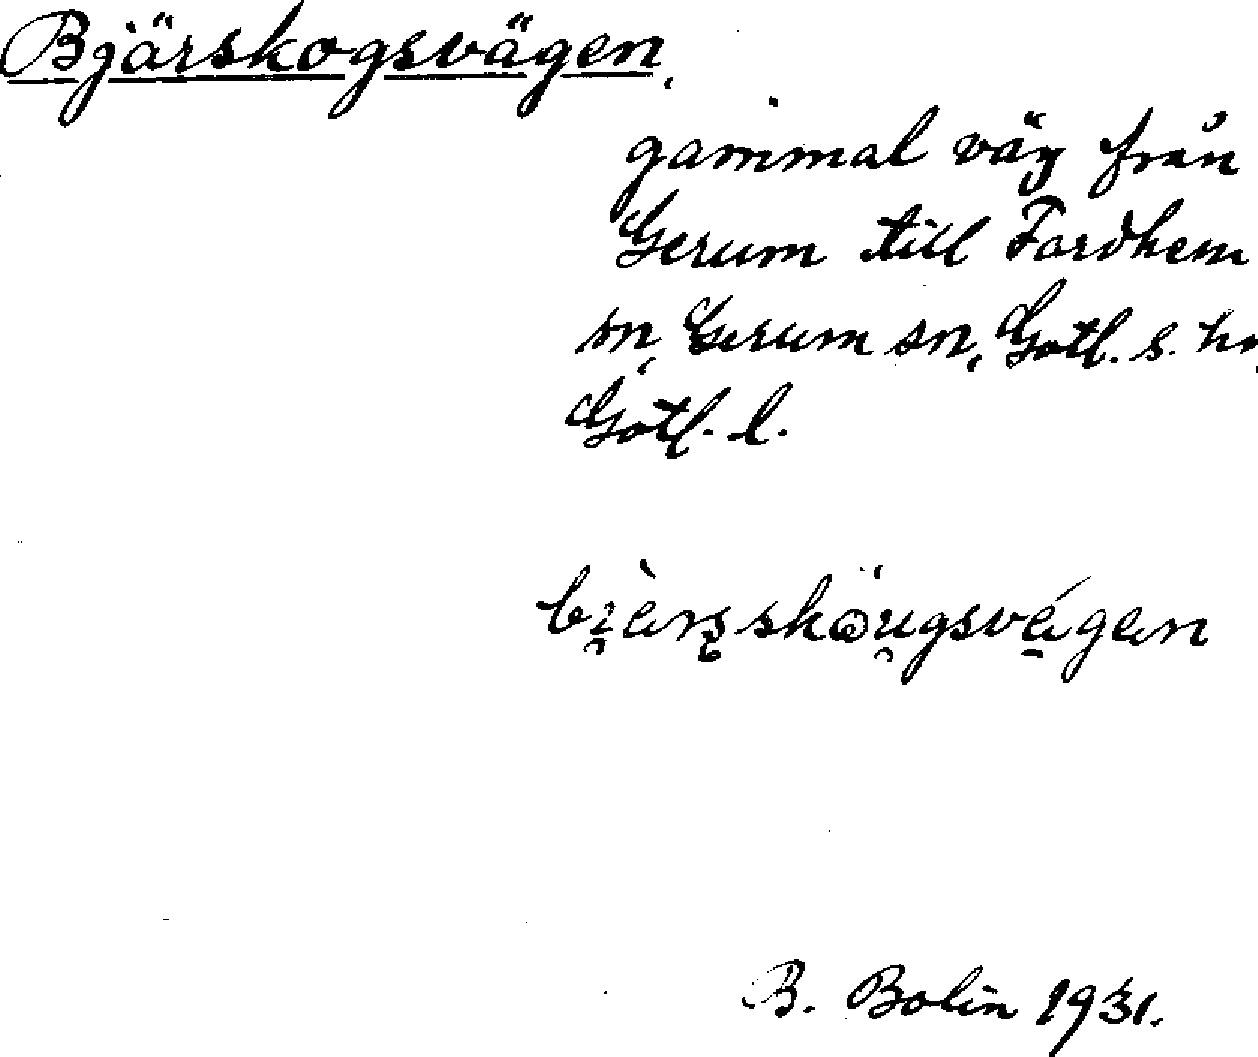 Bjärskogsvägen,
gammal väg från
Gerum till Fardhem
sn, Gerum sn, Gotl. s.
Gotl. l.
B. Bolin 1931.